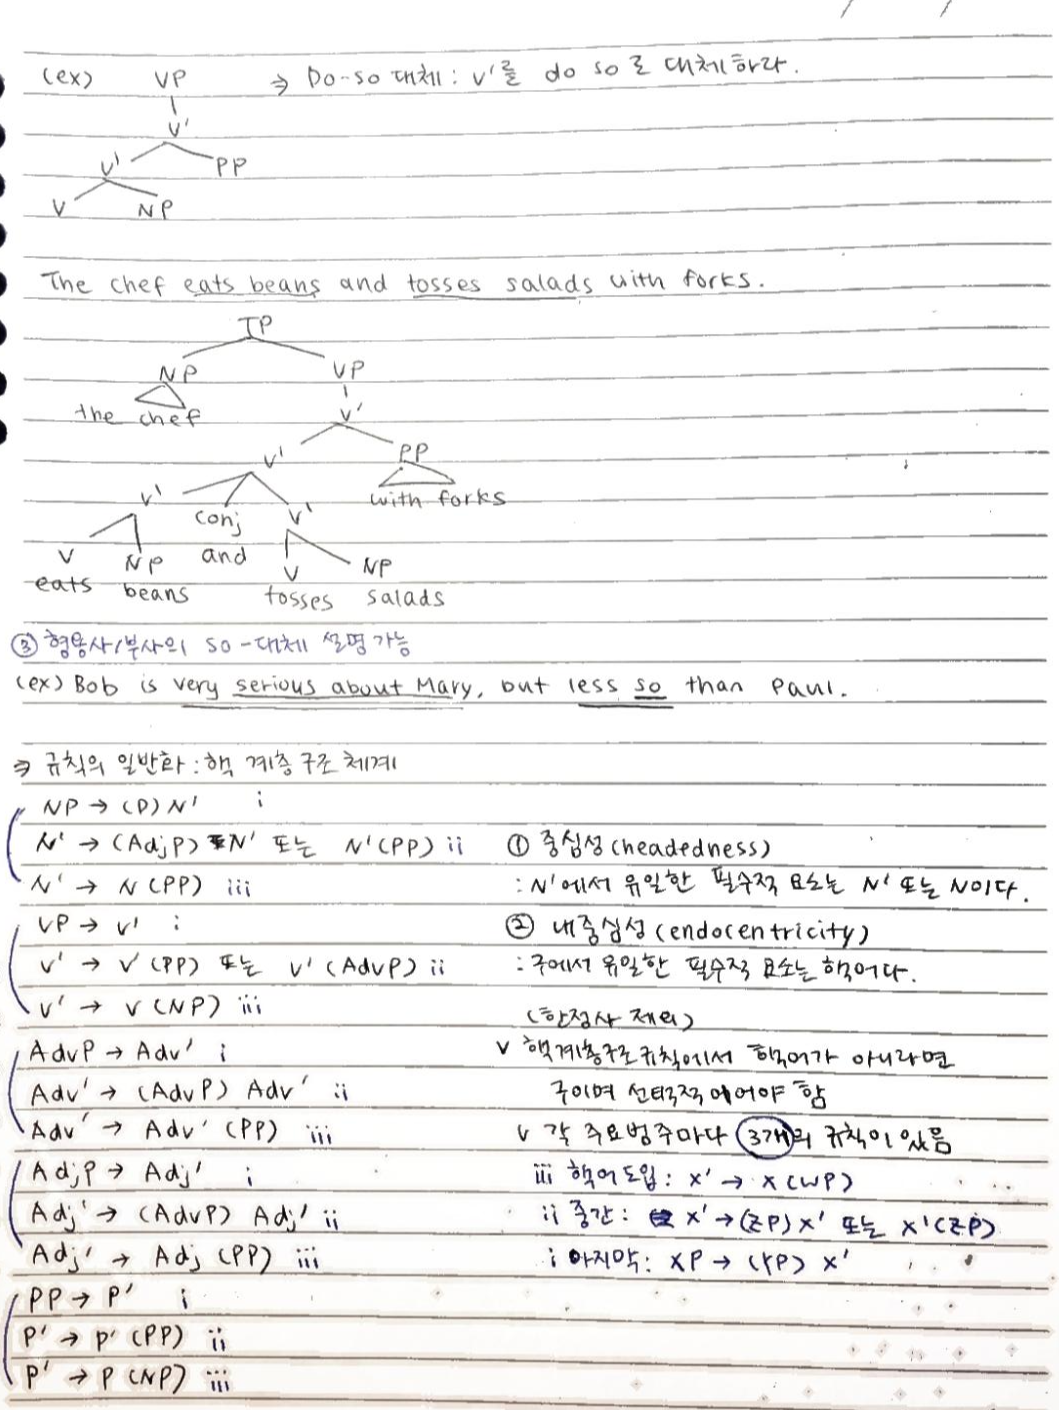 (ex) VP ⇒ Do-so 대체 : V'를 do so로 대체하라.
V'
V' PP
V NP
The chef eats beans and tosses salads with forks.
TP
NP VP
the chef V'
V' PP
with forks
V' conj V'
V NP and V NP
eats beans tosses salads
③ 형용사/부사의 so-대체 설명 가능
(ex) Bob is very serious about Mary, but less so than Paul.
⇒ 규칙의 일반화 : 핵 계층 구조 체계
NP → (D) N' i
N' → (AdjP) N' 또는 N'(PP) ii
N' → N (PP) iii
VP → V' i
V' → V'(PP) 또는 V'(AdvP) ii
V' → V (NP) iii
AdvP → Adv' i
Adv' → (AdvP) Adv' ii
Adv' → Adv' (PP) iii
AdjP → Adj' i
Adj' → (AdvP) Adj' ii
Adj' → Adj (PP) iii
PP → P' i
P' → P' (PP) ii
P' → P (NP) iii
① 중심성 (headedness)
: N'에서 유일한 필수적 요소는 N' 또는 N이다.
② 내중심성 (endocentricity)
: 구에서 유일한 필수적 요소는 핵어다.
(한정사 제외)
v 핵계층구조규칙에서 핵어가 아니라면
구이며 선택적 어야 함
v 각 주요범주마다 3개의 규칙이 있음
iii 핵어 도입 : X' → X (WP)
ii 중간 : X' → (ZP) X' 또는 X'(ZP)
i 마지막 : XP → (YP) X'